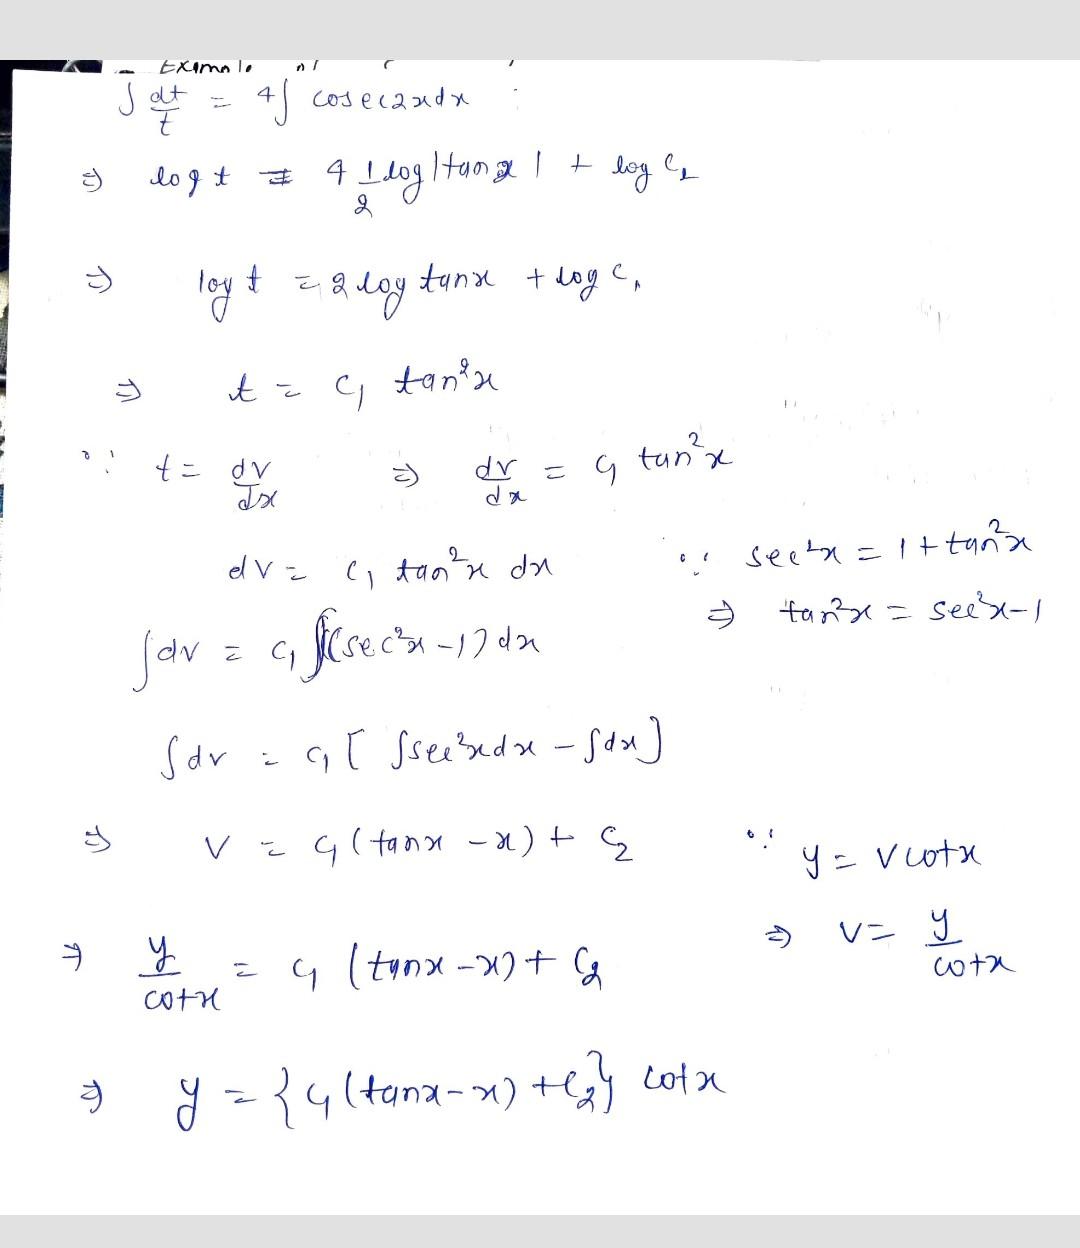 Example
∫ dt/t = 4∫ cosec2xdx
⇒ log t = 4 1/2 log|tanx| + log C1
⇒ log t = 2 log tanx + log C1
⇒ t = C1 tan²x
∵ t = dv/dx ⇒ dv/dx = C1 tan²x
dv = C1 tan²x dx ∵ sec²x = 1 + tan²x
⇒ tan²x = sec²x-1
∫dv = C1 ∫(sec²x -1) dx
∫dv = C1 [ ∫sec²xdx - ∫dx]
⇒ v = C1(tanx -x) + C2 ∵ y = v cotx
⇒ y/cotx = C1 (tanx -x) + C2 ⇒ v = y/cotx
⇒ y = {C1(tanx-x) +C2} cotx